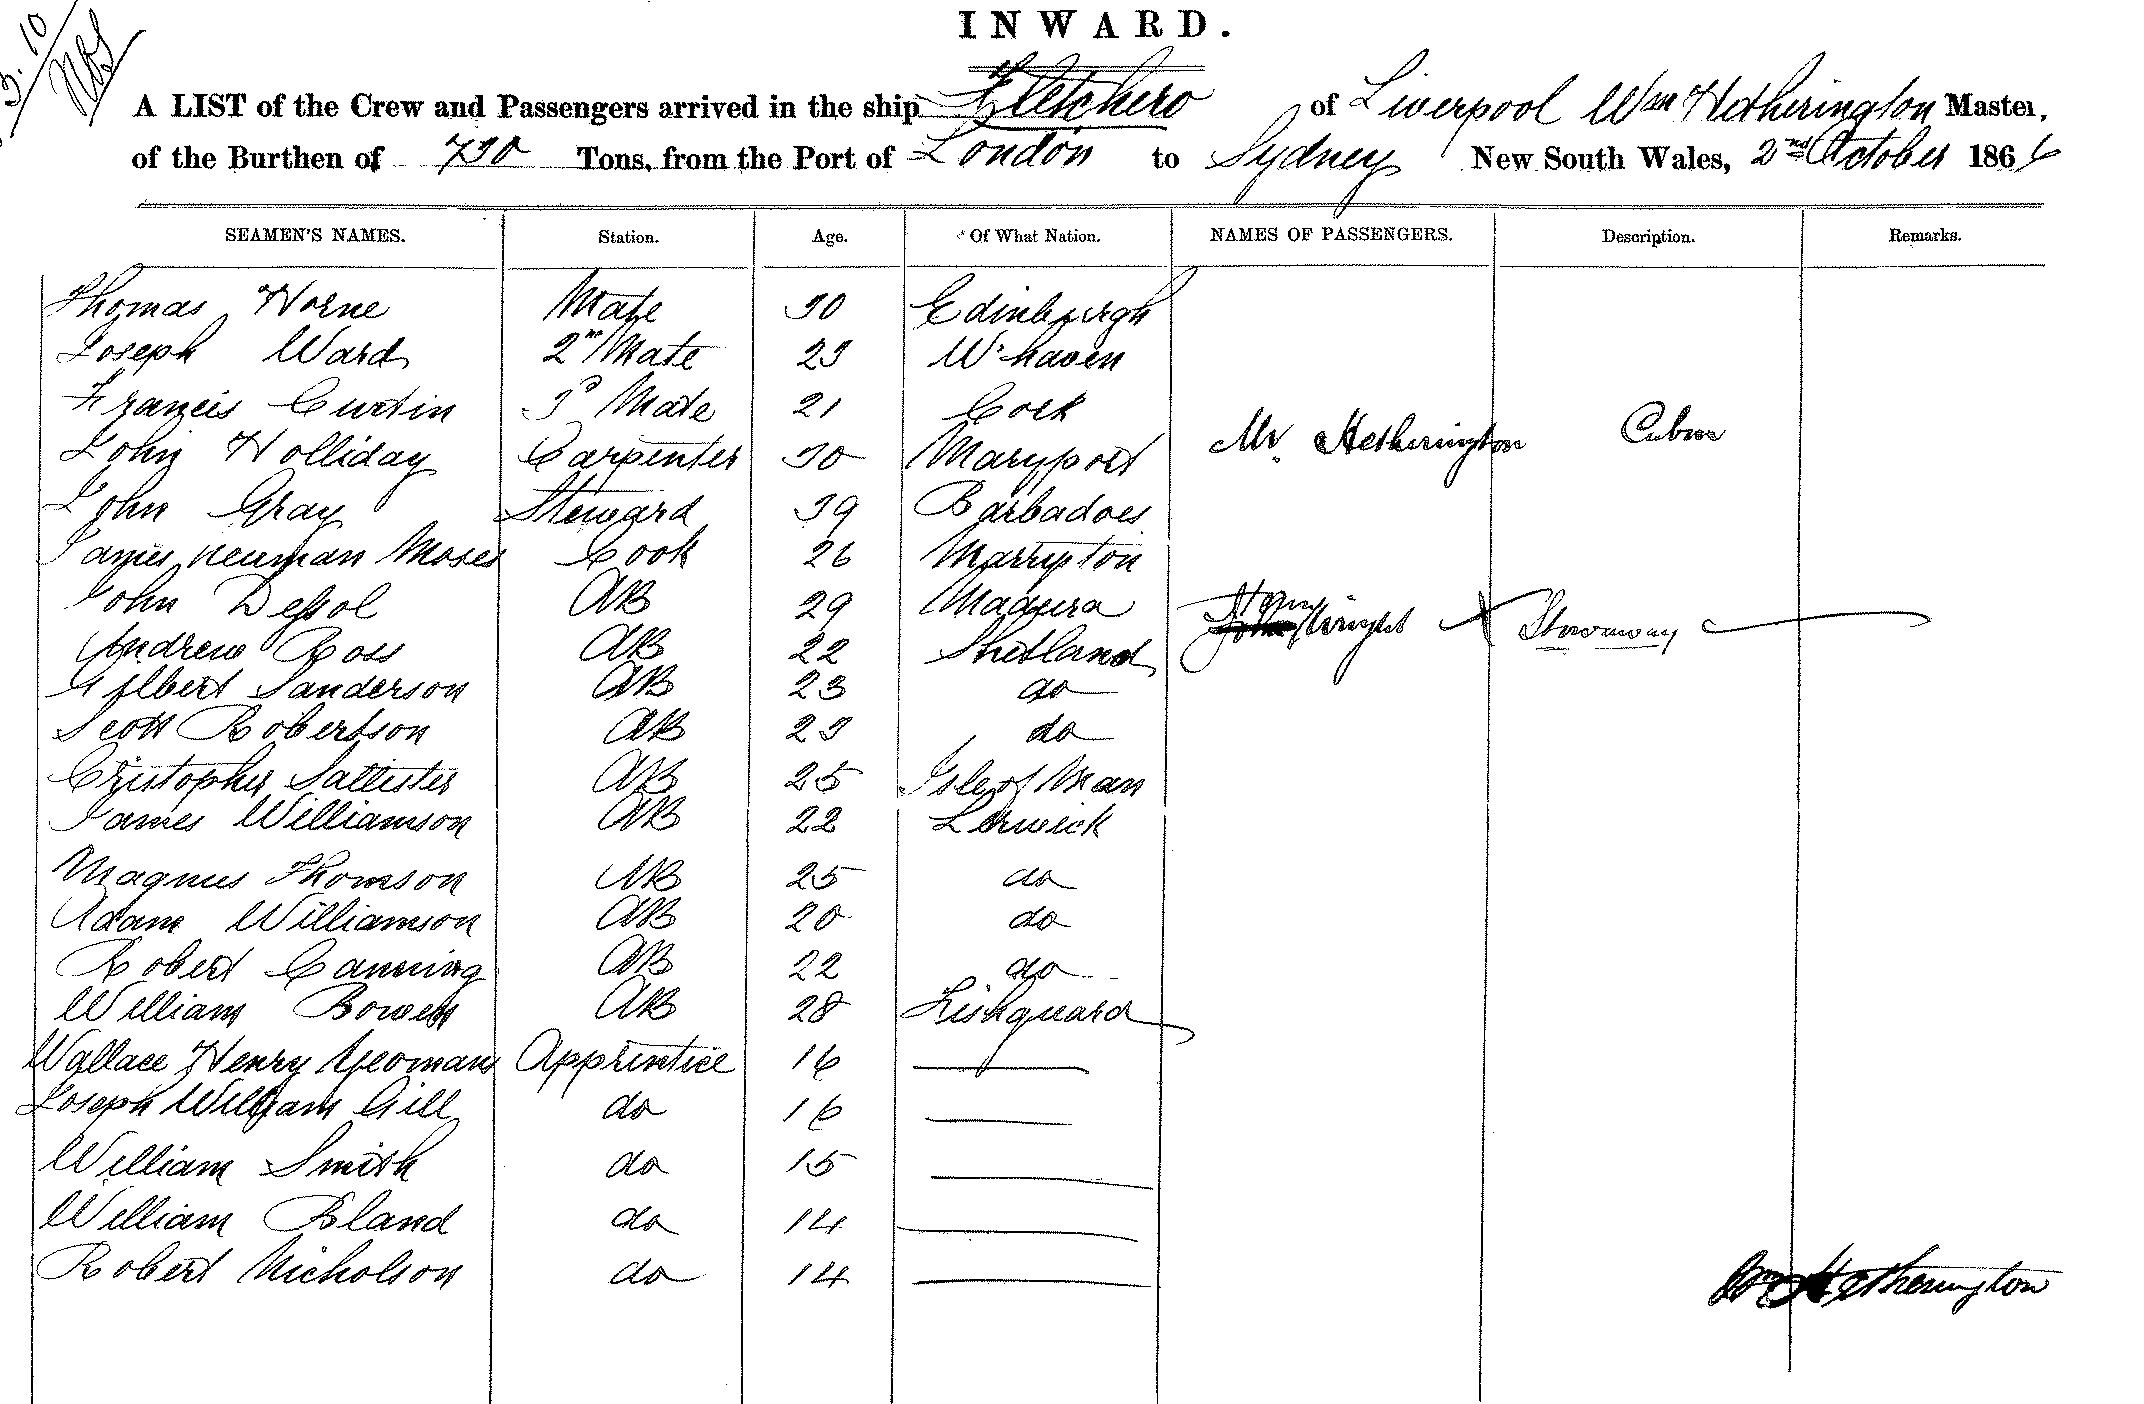 INWARD.
A LIST of the Crew and Passengers arrived in the ship Fletchero of Liverpool Wm Hetherington Master,
of the Burthen of 730 Tons, from the Port of London to Sydney New South Wales, 2nd October 1866
SEAMEN'S NAMES. Station. Age. Of What Nation. NAMES OF PASSENGERS. Description. Remarks.
Thomas Horne Mate 30 Edinburgh
Joseph Ward 2nd Mate 23 W'haven
Francis Curtin 3d Mate 21 Cork
Mr. Hetherington
John Holliday Carpenter 30 Maryport
John Gray Steward 39 Barbadoes
James Neuman Moses Cook 26
John AB 29 Madeira
Wright Stowaway
Andrew Ross AB 22 Shetland
Gilbert Sanderson AB 23 do
Scott Robertson AB 23 do
Cristopher AB 25 Isle of Man
James Williamson AB 22 Lerwick
Magnus Thomson AB 25 do
Adam Williamson AB 20 do
Robert Canning AB 22 do
William Bowen AB 28 Fishguard
Wallace Henry Yeomans Apprentice 16
Joseph William Gill do 16
William Smith do 15
William Bland do 14
Robert Nicholson do 14
Wm Hetherington